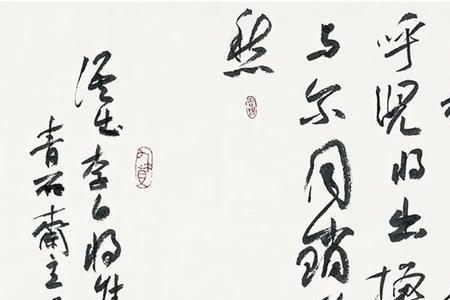 呼児将出换
与尔同销
愁
李白将进
青石斋主